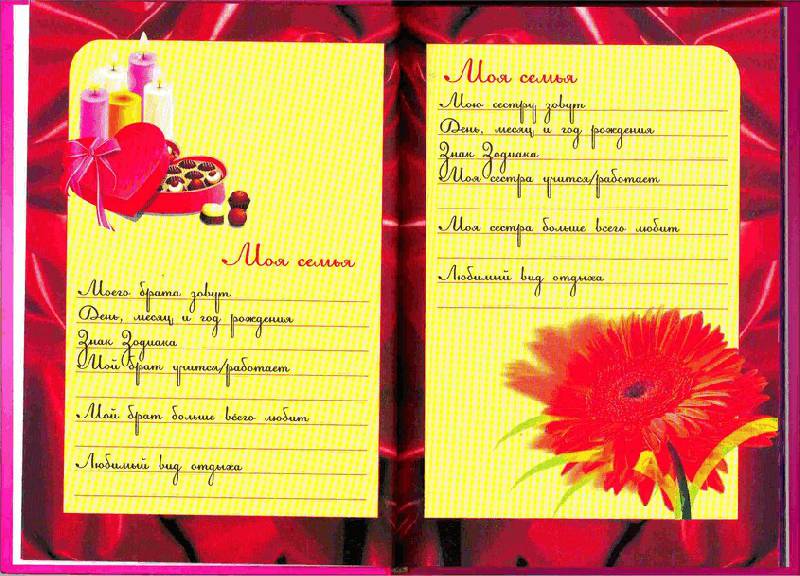 Моя семья
Моего брата зовут
День, месяц и год рождения
Знак Зодиака
Мой брат учится/работает
Мой брат больше всего любит
Любимый вид отдыха
Моя семья
Мою сестру зовут
День, месяц и год рождения
Знак Зодиака
Моя сестра учится/работает
Моя сестра больше всего любит
Любимый вид отдыха